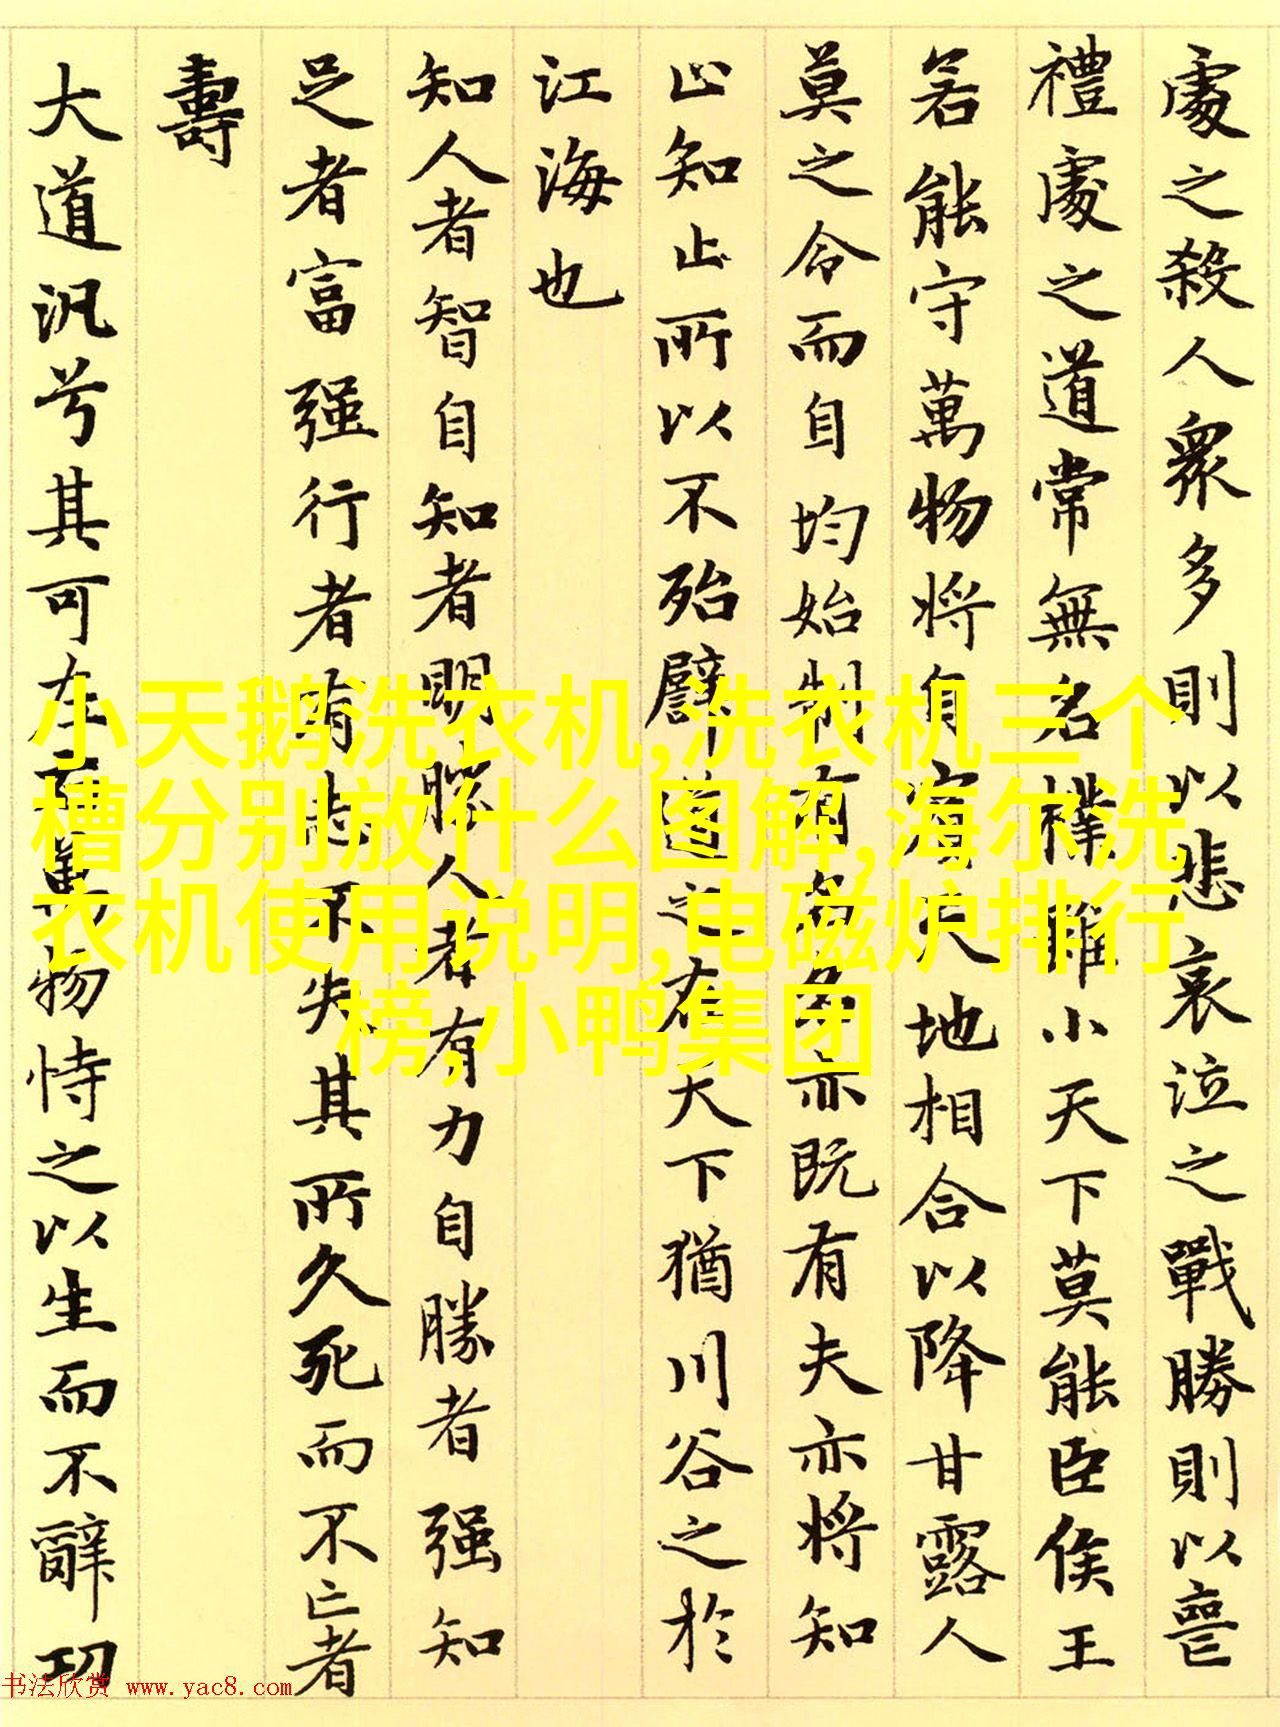 處之殺人衆多則以悲哀泣之戰勝則以喪
禮處之道常無名樸雖小天下莫能臣侯王
若能守萬物將自賓天地相合以降甘露人
莫之令而自均始制有名名亦既有夫亦將知
止知止所以不殆譬道之在天下猶川谷之於
江海也
知人者智自知者明勝人者有力自勝者强知
足者富强行者有志不失其所久死而不亡者
壽
大道汎兮其可左右萬物恃之以生而不辭功
小天鹅洗衣机,洗衣机三个
槽分别放什么图解,海尔洗
衣机使用说明,电磁炉排行
榜,小鸭集团
书法欣赏 www.yac8.com